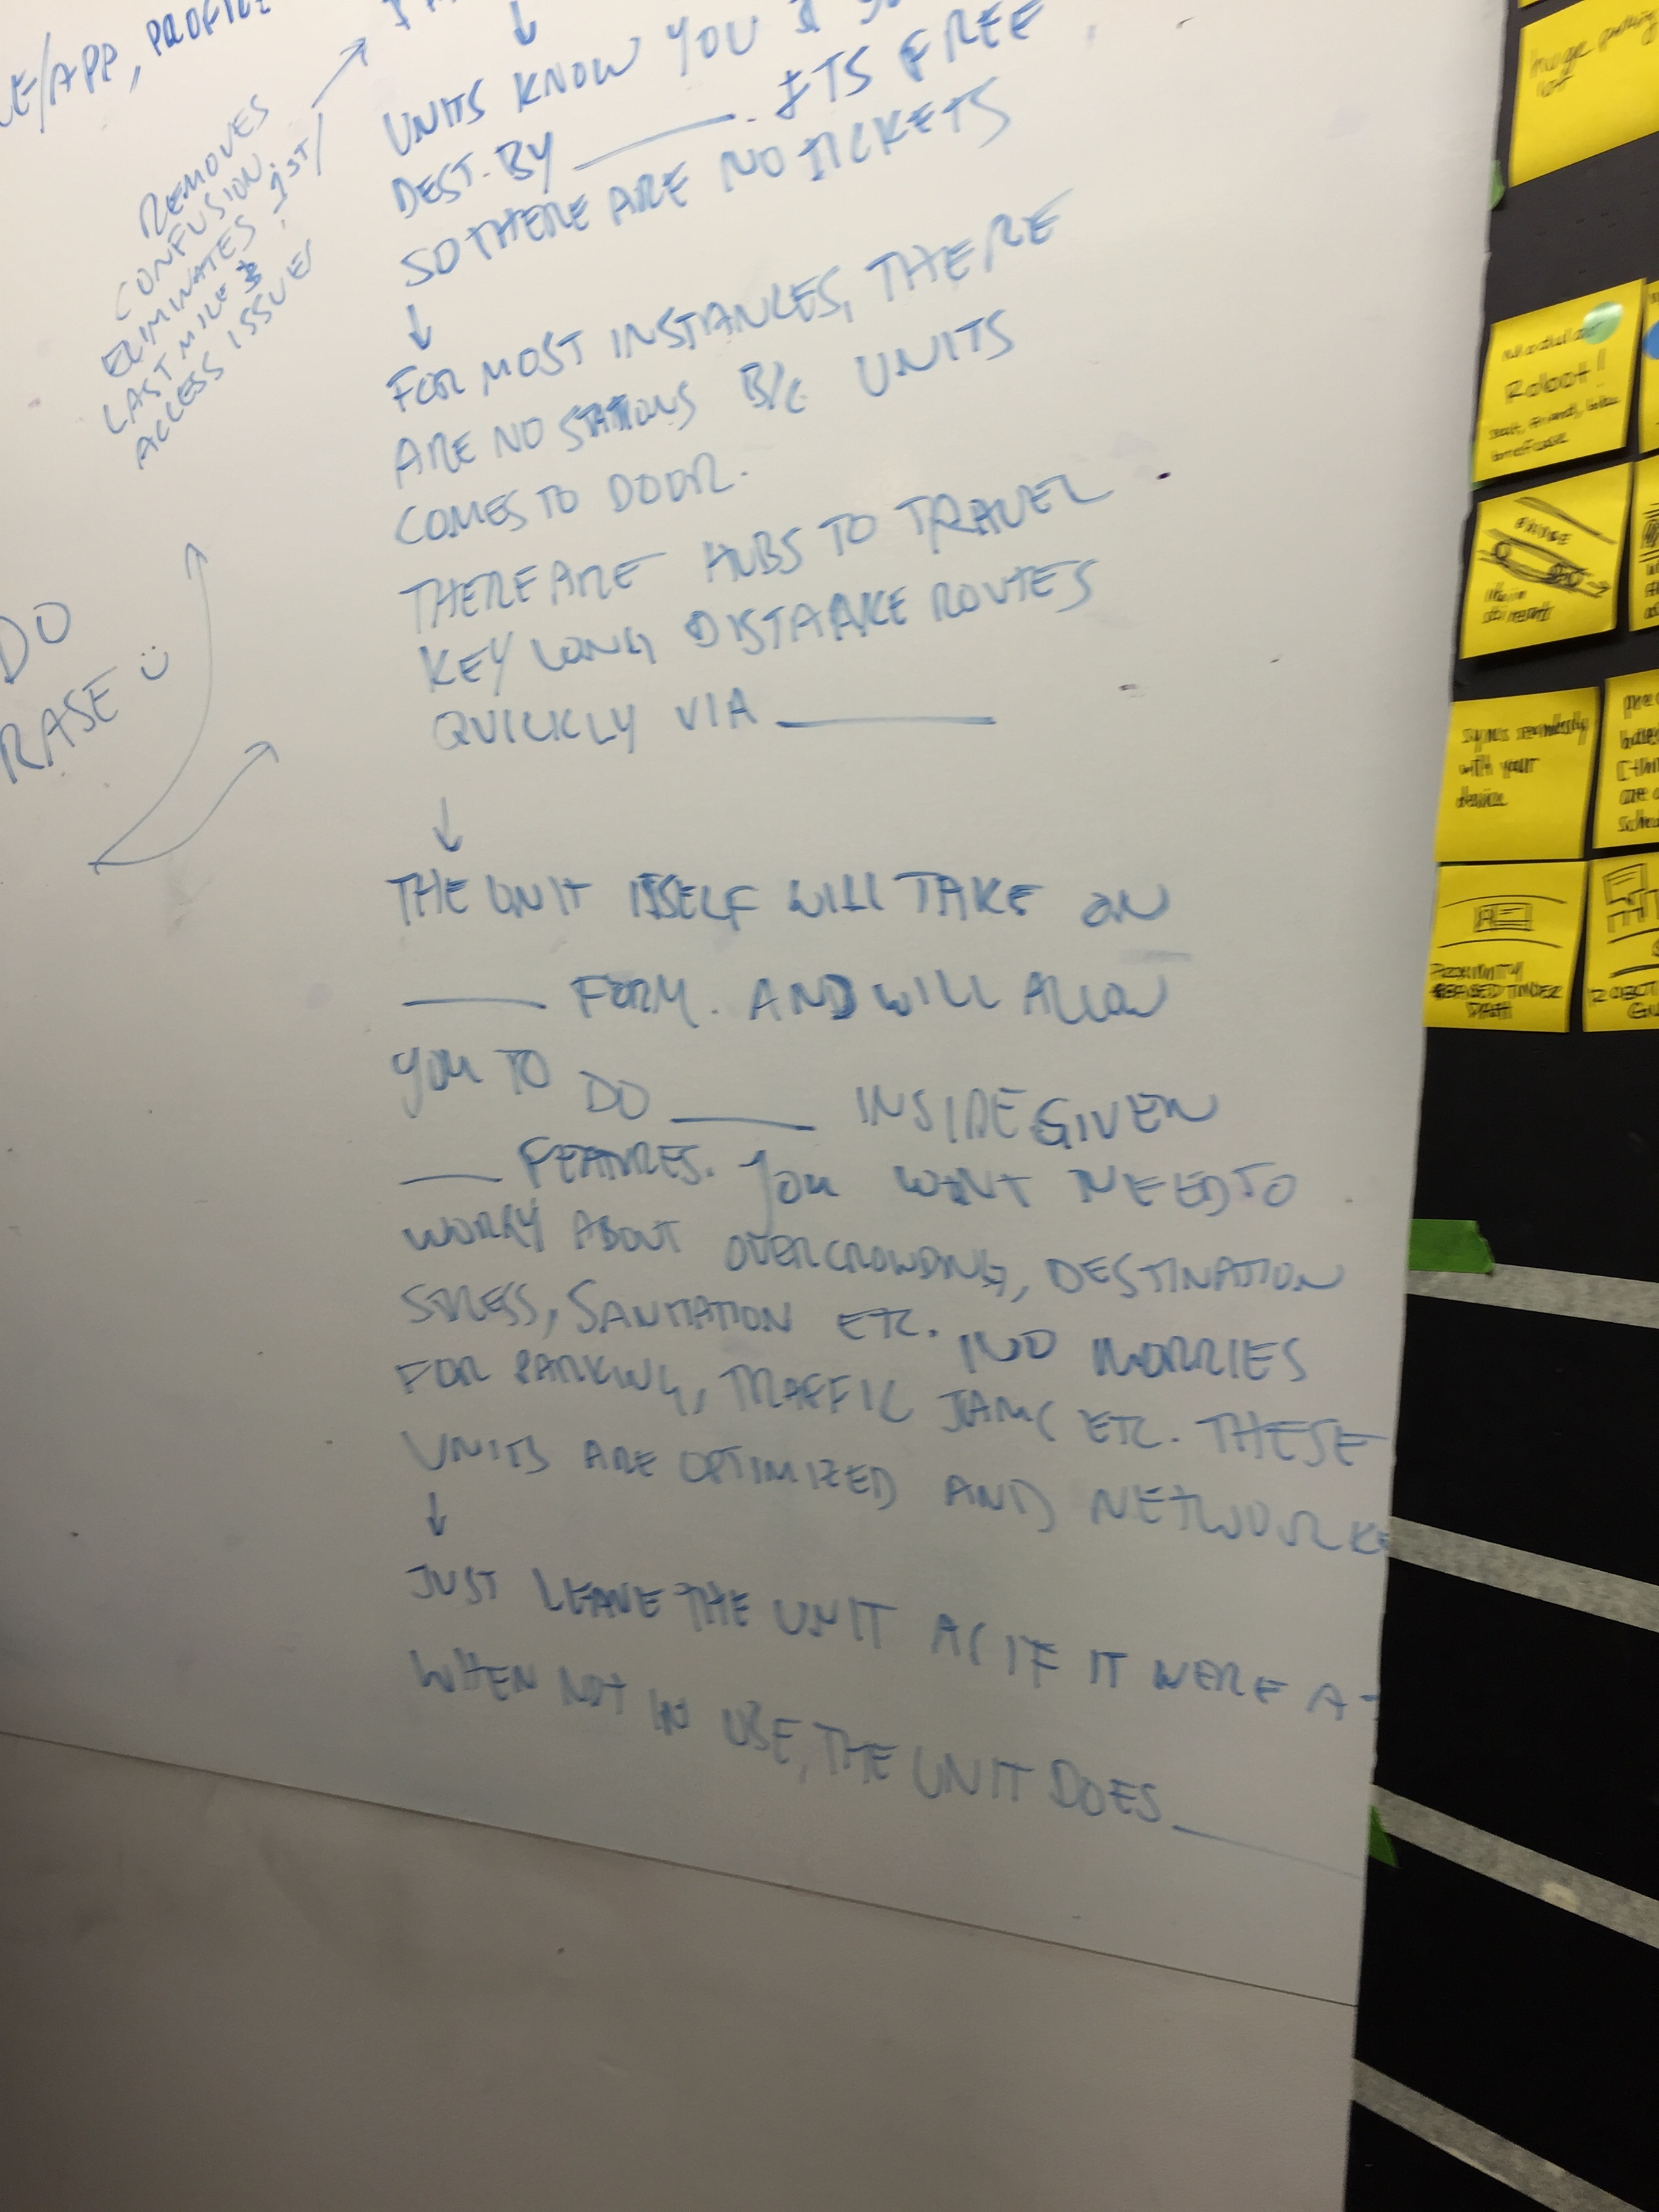 E/APP, PROFILE
UNITS KNOW YOU &
DEST. BY ______. ITS FREE
SO THERE ARE NO TICKETS
↓
FOR MOST INSTANCES, THERE
ARE NO STATIONS B/C UNITS
COMES TO DOOR.
THERE ARE HUBS TO TRAVEL
KEY LONG DISTANCE ROUTES
QUICKLY VIA ______
↓
THE UNIT ITSELF WILL TAKE ON
______ FORM. AND WILL ALLOW
YOU TO DO ______ INSIDE GIVEN
____ FEATURES. YOU WONT NEED TO
WORRY ABOUT OVERCROWDING, DESTINATION
STRESS, SANITATION ETC. NO WORRIES
FOR PARKING, TRAFFIC JAMS ETC. THESE
UNITS ARE OPTIMIZED AND NETWORKE
↓
JUST LEAVE THE UNIT AS IF IT WERE A
WHEN NOT IN USE, THE UNIT DOES ______
REMOVES
CONFUSION.
ELIMINATES 1ST/
LAST MILE &
ACCESS ISSUES
DO
RASE
huge parking
lot
Modular
Robot!
briefcase
syncs seamlessly
with your
device
PROXIMITY
BASED TINDER
PATH
ROBOT